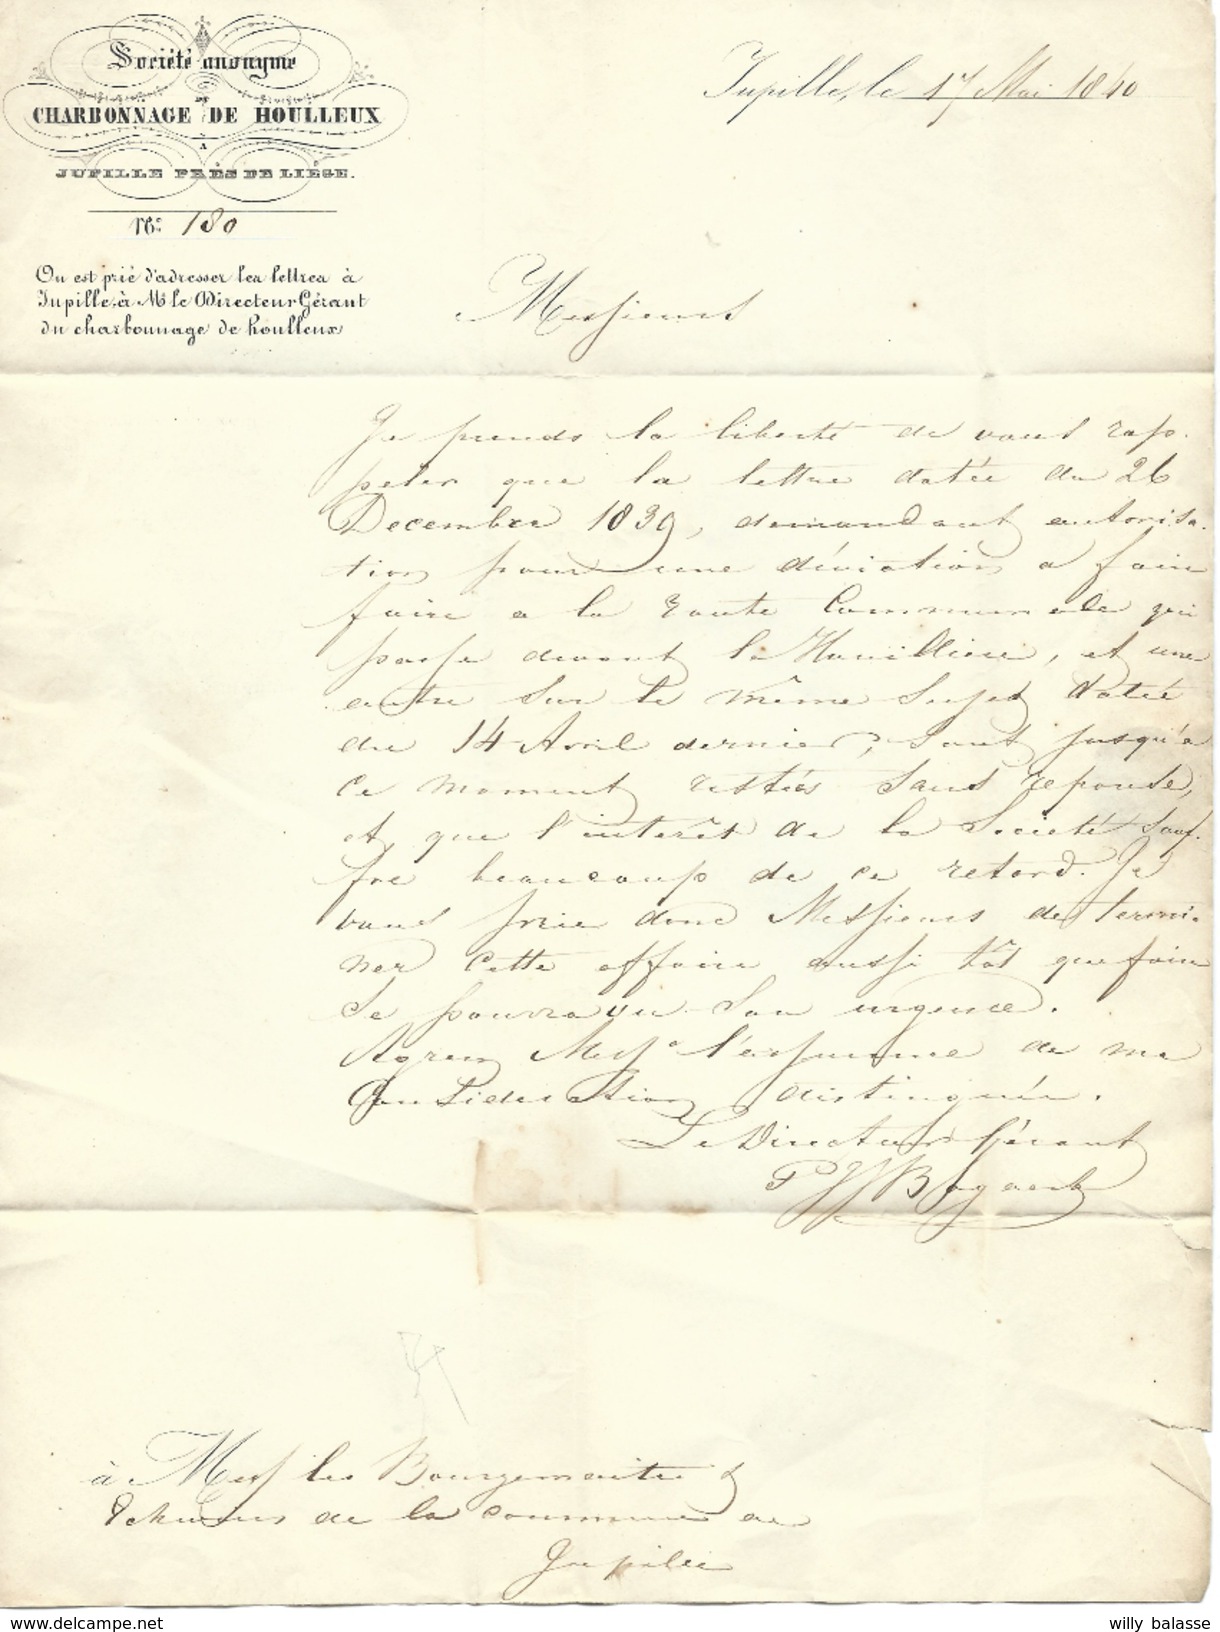 Société anonyme
DE
CHARBONNAGE DE HOULLEUX
A
JUPILLE PRÈS DE LIÉGE.
N° 180
On est prié d'adresser les lettres à
Jupille, à Mr le Directeur Gérant
du charbonnage de houlleux
Jupille, le 17 Mai 1840
Messieurs
Je prends la liberté de vous rap-
peler que la lettre datée du 26
Decembre 1839, demandant autorisa-
tion pour une déviation a faire
faire a la route Communale qui
passe devant la Houillière, et une
autre sur le même sujet datée
du 14 Avril dernier, sont jusqu'a
ce moment restées sans reponse,
et que l'interêt de la Societé souf-
fre beaucoup de ce retard. Je
vous prie donc Messieurs de termi-
ner cette affaire aussi tôt que faire
se pourra vu son urgence.
Agreez Messrs l'assurance de ma
Consideration distinguée.
Le Directeur Gérant
Bogaert
à Mess les Bourgemaitre &
Echevins de la commune de
Jupille
willy balasse